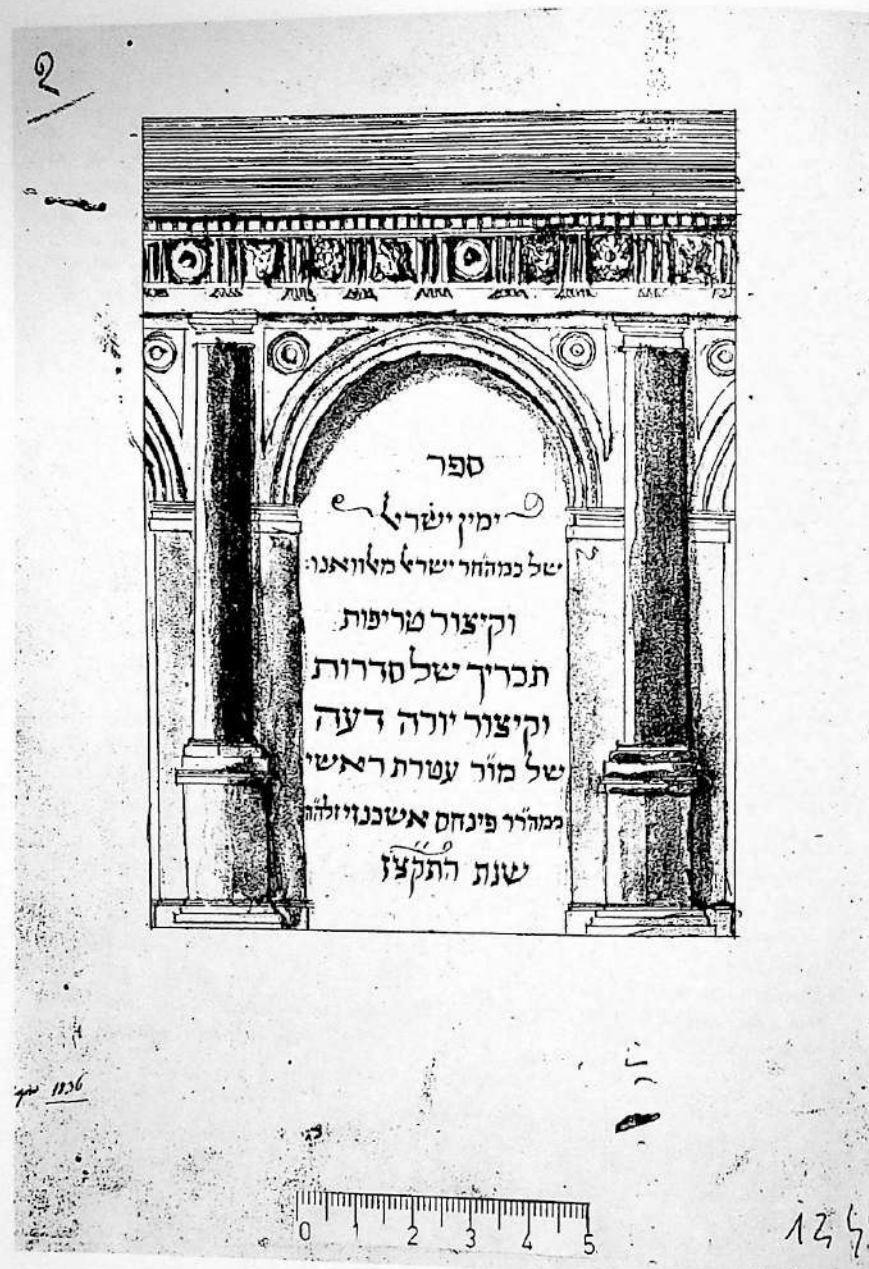 2
ספר
ימין ישראל
של כמה״חר ישראל
וקיצור טריפות
תכריך של סדרות
וקיצור יורה דעה
של מו״ר עטרת ראשי
כמה״רר פינחס אשכנזי זלה״ה
שנת התקצ״ז
1836
0 1 2 3 4 5